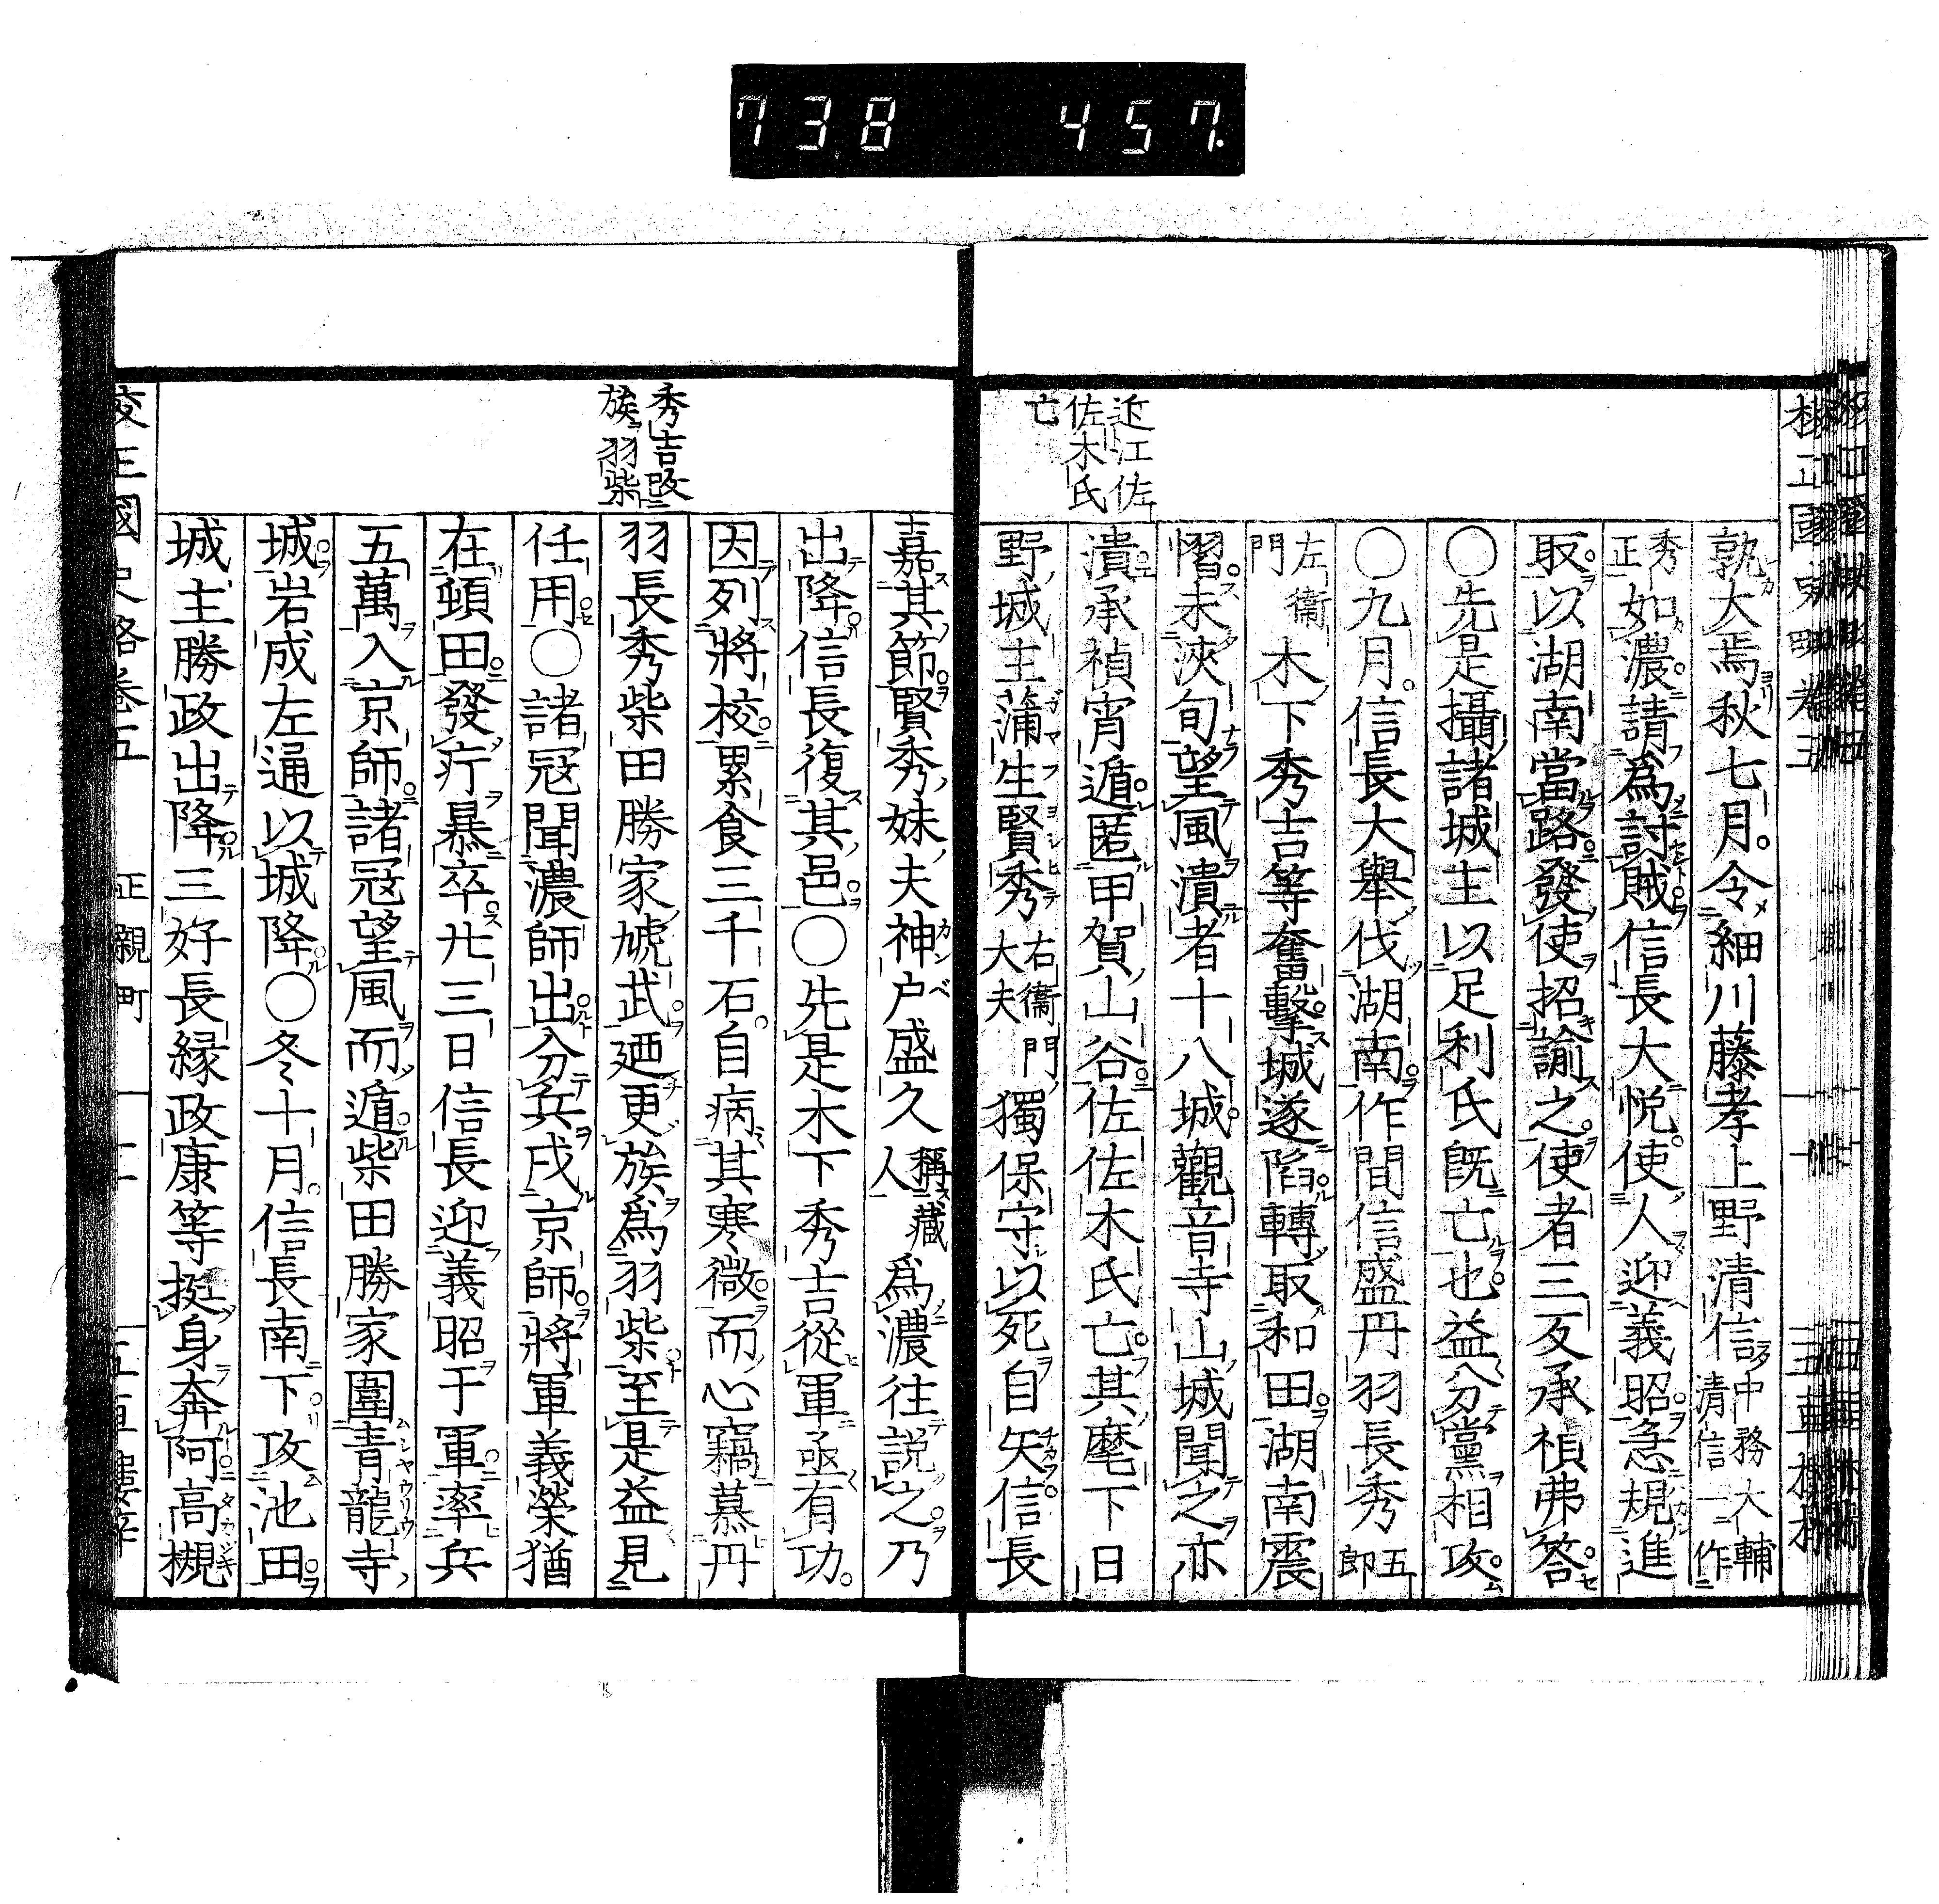 738 457.
近江佐
佐木氏
亡
孰大焉秋七月令細川藤孝上野清信中務大輔清信一作
秀正如濃請爲討賊信長大悦使人迎義昭急規進
取以湖南當路發使招諭之使者三反承禎弗答
〇先是攝諸城主以足利氏既亡也益分黨相攻
〇九月信長大擧伐湖南作間信盛丹羽長秀五郎
左衞門木下秀吉等奮擊城遂陷轉取和田湖南震
慴未浹旬望風潰者十八城觀音寺山城聞之亦
潰承禎宵遁匿甲賀山谷佐佐木氏亡其麾下日
野城主蒲生賢秀右衞門大夫獨保守以死自矢信長
秀吉改
族羽柴
嘉其節賢秀妹夫神戸盛久稱藏人爲濃往説之乃
出降信長復其邑〇先是木下秀吉從軍亟有功
因列將校累食三千石自病其寒微而心竊慕丹
羽長秀柴田勝家虓武廼更族爲羽柴至是益見
任用〇諸冦聞濃師出分兵戍京師將軍義榮猶
在頓田發疔暴卒廿三日信長迎義昭于軍率兵
五萬入京師諸冦望風而遁柴田勝家圍青龍寺
城岩成左通以城降〇冬十月信長南下攻池田
城主勝政出降三好長縁政康等挺身奔阿高槻
正親町